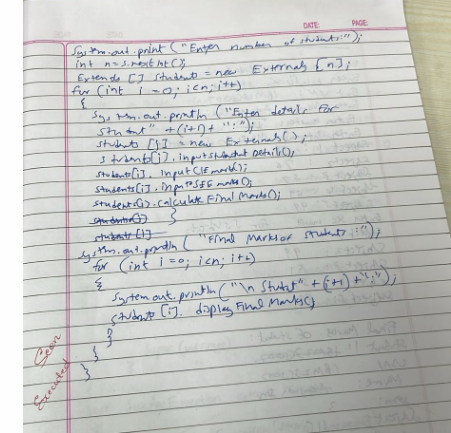 DATE: PAGE:
System.out.print ("Enter number of students:");
int n = s.nextInt();
Externals [] students = new Externals [n];
for (int i =0; i<n; i++)
{
System.out.println ("Enter details for
student" + (i+1) + ":");
students [i] = new Externals();
students[i]. input Student Details();
students[i]. input CIE marks();
students[i]. input SEE marks();
students[i]. calculate Final Marks();
}
System.out.println ( "Final Marks of students :");
for (int i =0; i<n; i++)
{
System.out.println ("\n Student" + (i+1) + ":");
students [i]. display Final Marks();
}
}
}
}
Executed